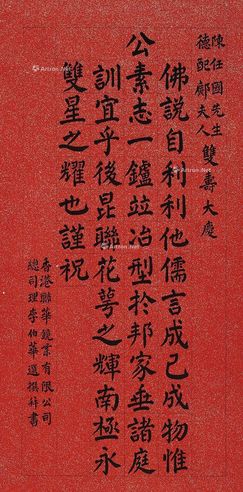 陳任國先生
德配鄺夫人 雙壽大慶
佛説自利利他儒言成己成物惟
公素志一鑪竝冶型於邦家垂諸庭
訓宜乎後昆聯花萼之輝南極永
雙星之耀也謹祝
香港聯華鏡業有限公司
總司理李伯華選撰幷書
Artron.Net
Artron.Net
Artron.Net